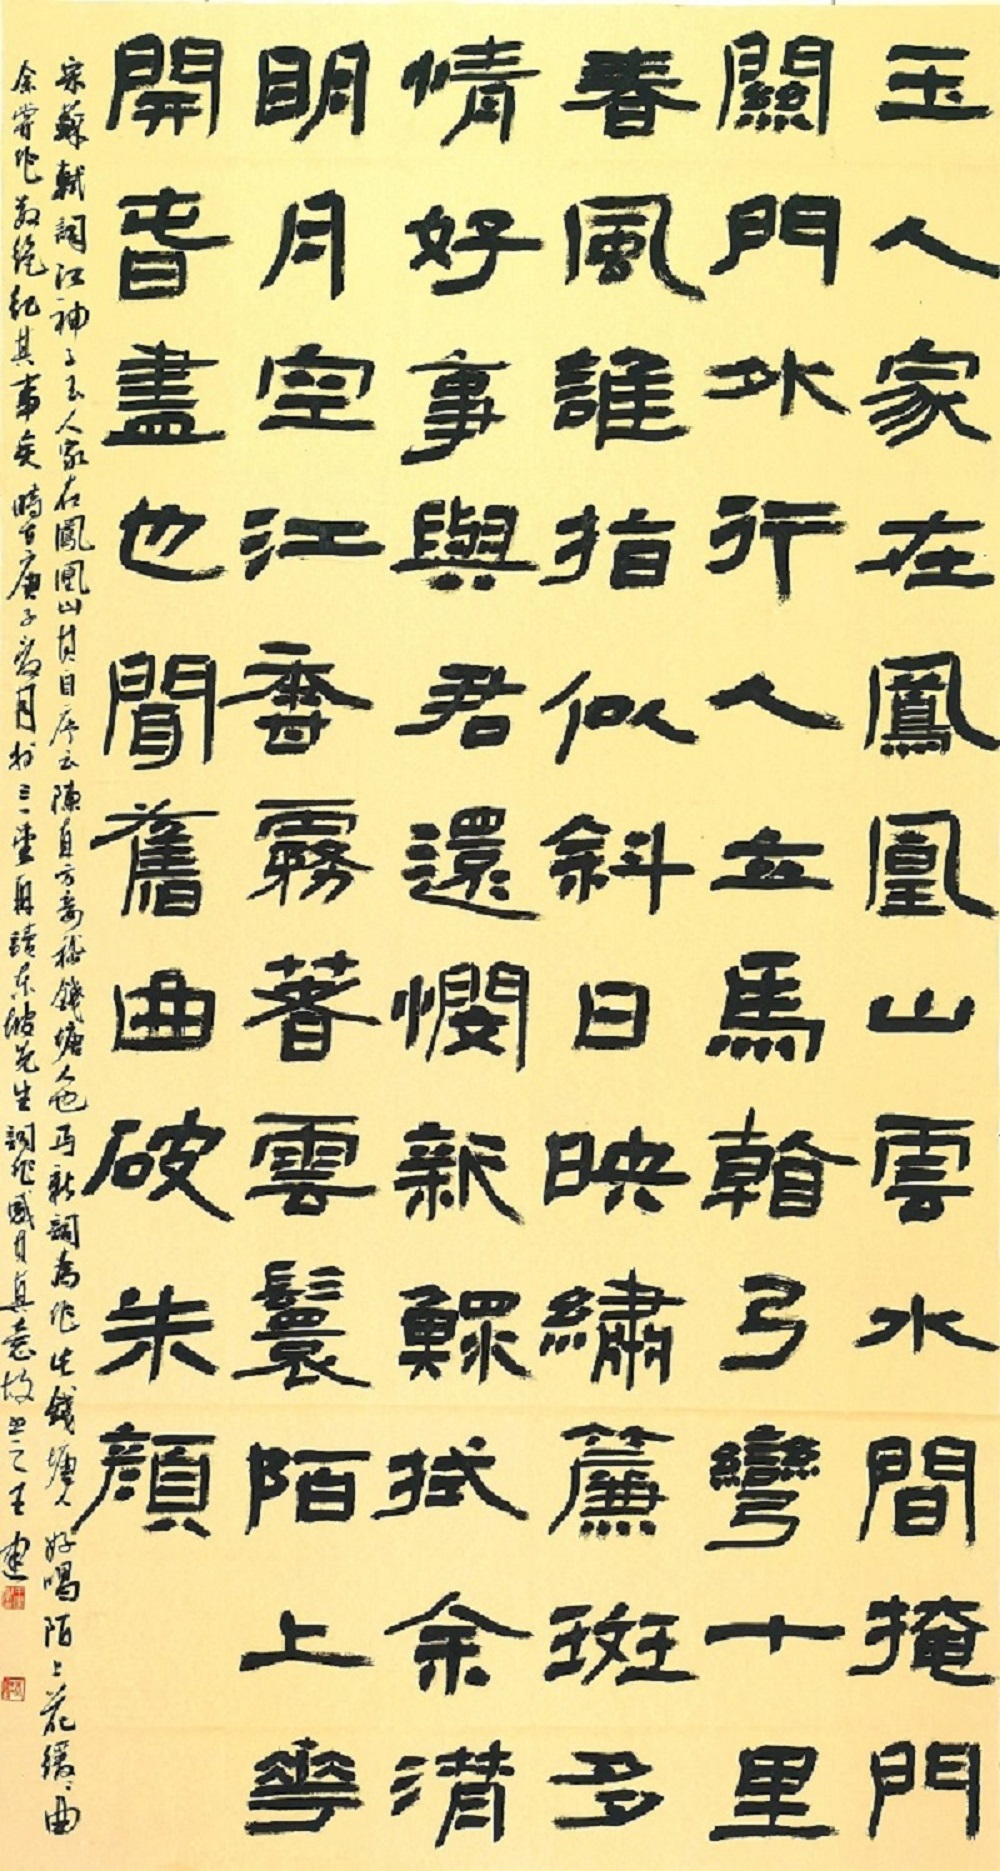 玉人家在鳳凰山雲水間掩門
關門外行人立馬䩺弓彎十里
春風誰指似斜日映繡簾斑多
情好事與君還憫新鰥拭余潸
明月空江香霧著雲鬟陌上華
開昔盡也聞舊曲破朱顏
宋蘇軾詞江神子玉人家在鳳凰山其自序云陳直方妾嵇錢塘人也丐新詞為作此錢塘人好唱陌上花緩緩曲
余嘗作數絕紀其事矣時在庚子當月於三一堂再讀東坡先生詞作感其真意故書之王建